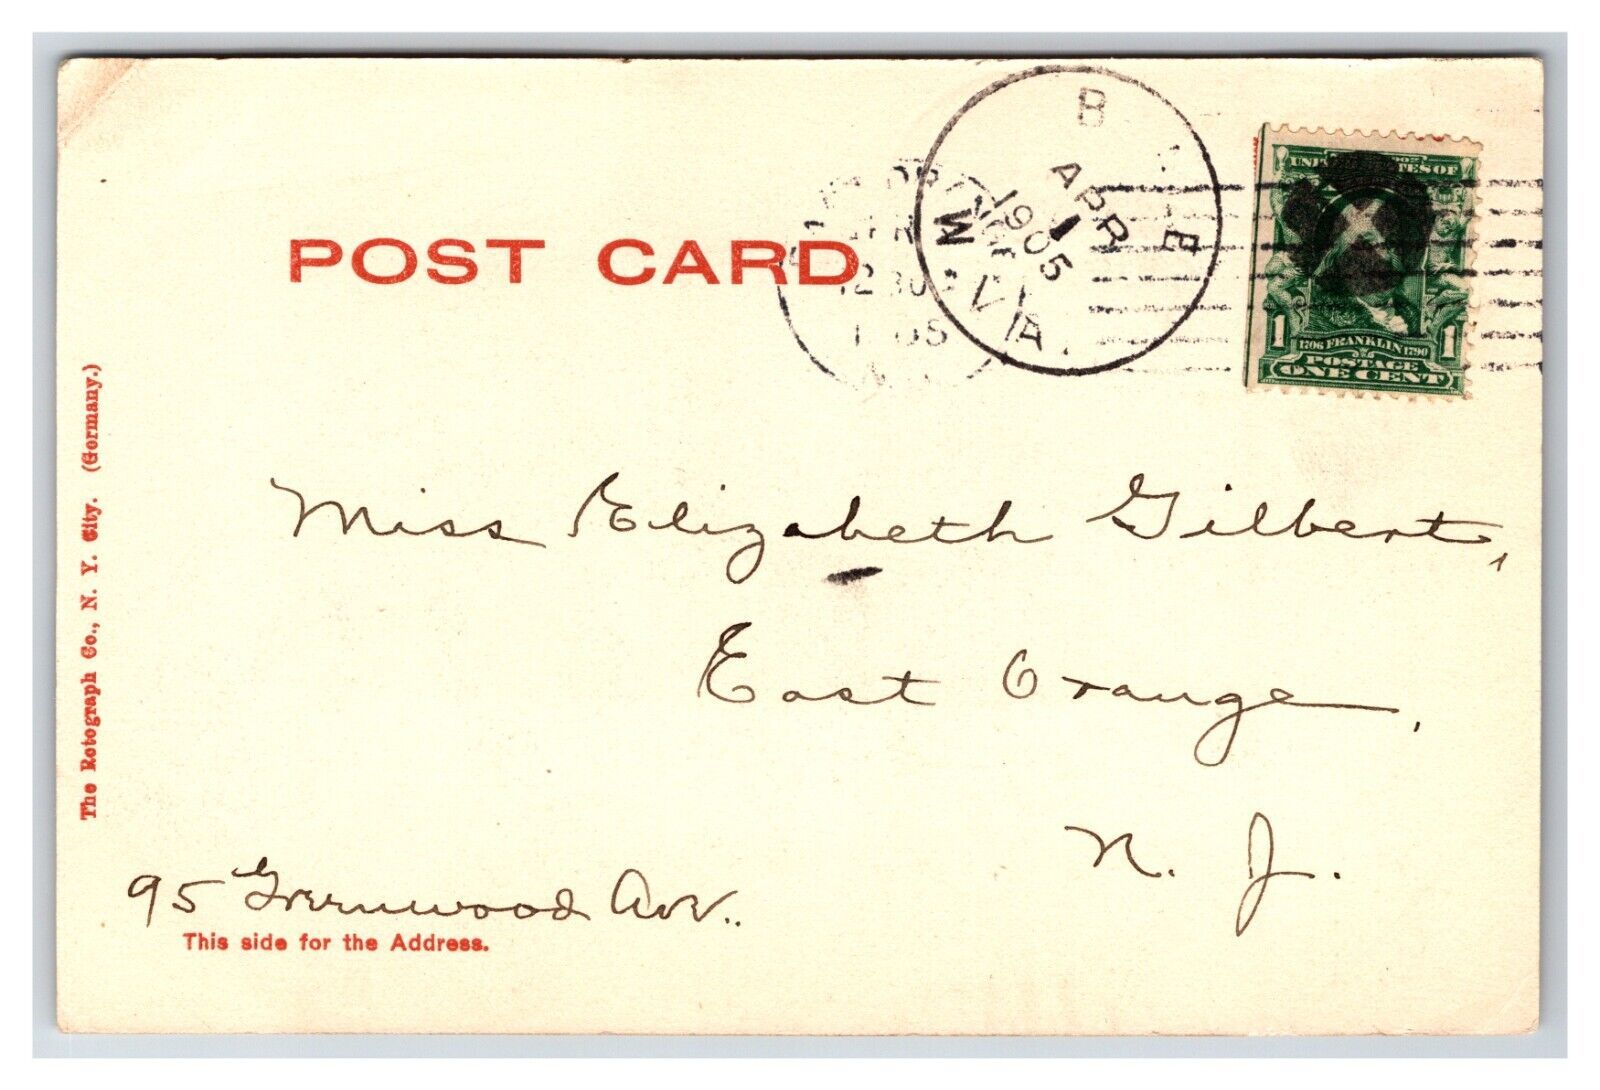 POST CARD
B
E
W. VA.
APR
1
1905
ORANGE
12 30
SERIES 1902
1 1
1706 FRANKLIN 1790
POSTAGE
ONE CENT
Miss Elizabeth Gilbert,
East Orange,
N. J.
95 Greenwood Ave..
This side for the Address.
The Rotograph Co., N. Y. City. (Germany.)